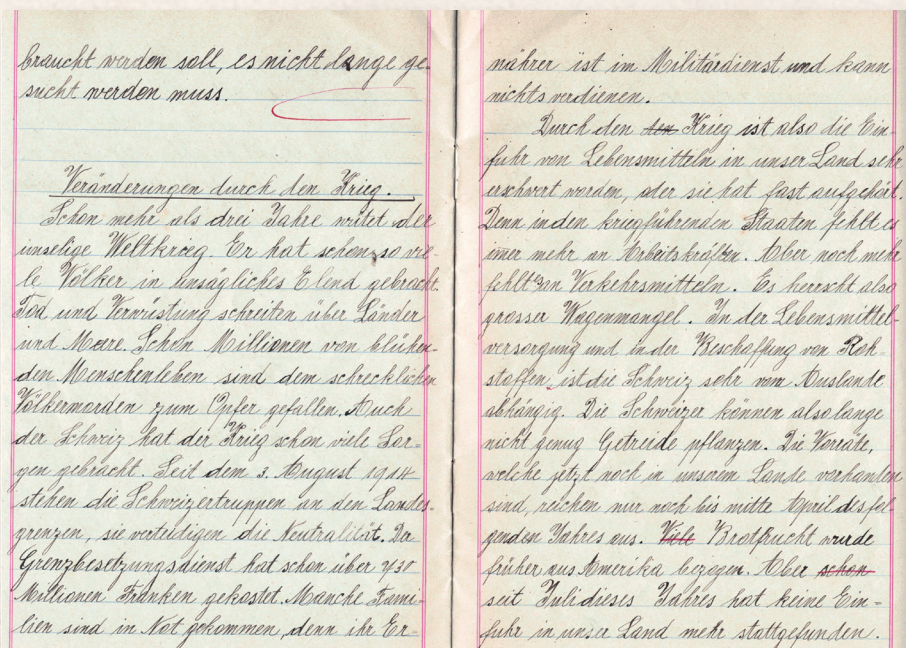 braucht werden soll, es nicht lange ge-
sucht werden muss.
Veränderungen durch den Krieg.
Schon mehr als drei Jahre wütet der
unselige Weltkrieg. Er hat schon so vie-
le Völker in unsägliches Elend gebracht.
Tod und Verwüstung schreiten über Länder
und Meere. Schon Millionen von blühen-
den Menschenleben sind dem schrecklichen
Völkermorden zum Opfer gefallen. Auch
der Schweiz hat der Krieg schon viele Sor-
gen gebracht. Seit dem 3. August 1914
stehen die Schweizertruppen an den Landes-
grenzen, sie verteidigen die Neutralität. Der
Grenzbesetzungsdienst hat schon über
Millionen Franken gekostet. Manche Fami-
lien sind in Not gekommen, denn ihr Er-
nährer ist im Militärdienst und kann
nichts verdienen.
Durch den den Krieg ist also die Ein-
fuhr von Lebensmitteln in unser Land sehr
erschwert worden, oder sie hat fast aufgehört.
Denn in den kriegführenden Staaten fehlt es
imer mehr an Arbeitskräften. Aber noch mehr
fehlt es an Verkehrsmitteln. Es herrscht also
grosser Wagenmangel. In der Lebensmittel-
versorgung und in der Beschaffung von Roh-
stoffen, ist die Schweiz sehr vom Auslande
abhängig. Die Schweizer können also lange
nicht genug Getreide pflanzen. Die Vorräte,
welche jetzt noch in unserem Lande vorhanden
sind, reichen nur noch bis mitte April des fol-
genden Jahres aus. Viele Brotfrucht wurde
früher aus Amerika bezogen. Aber schon
seit Juli dieses Jahres hat keine Ein-
fuhr in unser Land mehr stattgefunden.